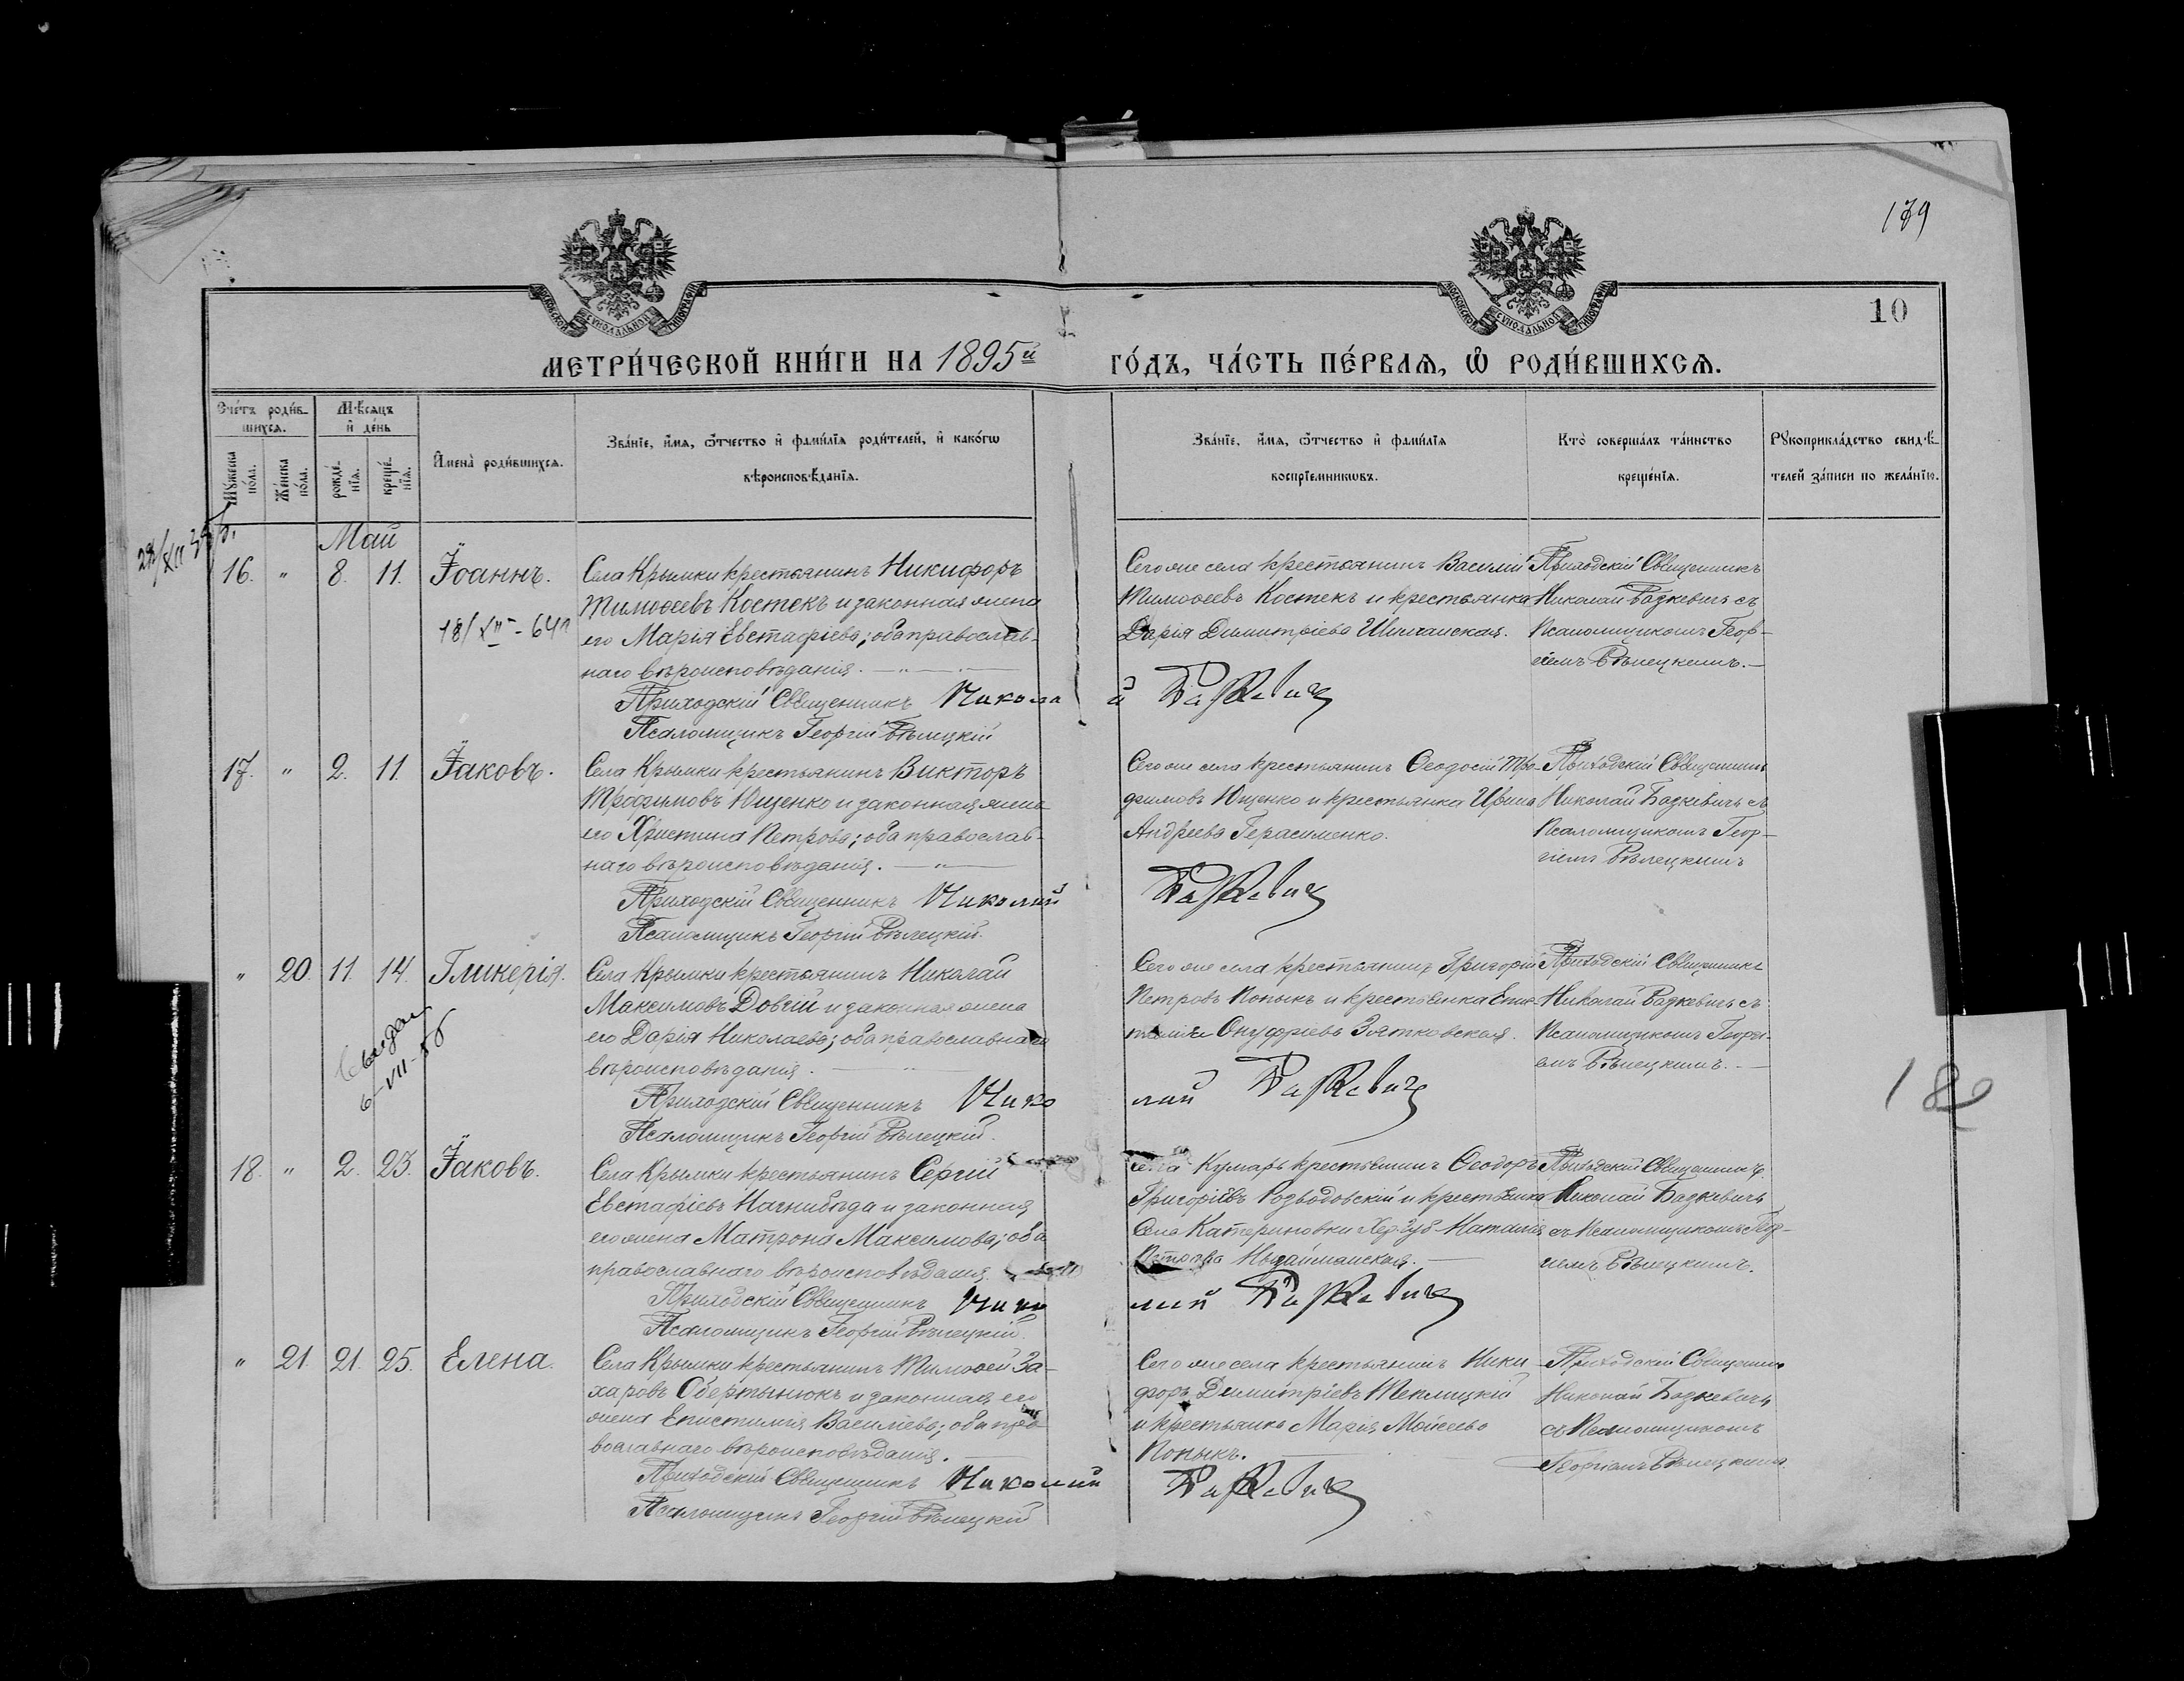 179
МОСКОВСКОЙ СѴНОДАЛЬНОЙ ТИПОГРАФІИ
МОСКОВСКОЙ СѴНОДАЛЬНОЙ ТИПОГРАФІИ
10
МЕТРИ́ЧЕСКОЙ КНИ́ГИ НА 1895й ГО́ДЪ, ЧА́СТЬ ПЕ́РВАѦ, Ѡ҆ РОДИ́ВШИХСѦ.
Сче́тъ роди́в-
шихсѧ.
Мꙋ́жеска по́ла.
Же́нска по́ла.
Мѣ́сѧцъ и҆ де́нь
рожде́-
нїѧ.
креще́-
нїѧ.
И҆мена̀ роди́вшихсѧ.
Зва́нїе, и҆́мѧ, ѻ҆́тчество и҆ фами́лїѧ роди́телей, и҆ како́гѡ
вѣроисповѣ́данїѧ.
Зва́нїе, и҆́мѧ, ѻ҆́тчество и҆ фами́лїѧ
воспрїе́мникѡвъ.
Кто̀ соверша́лъ та́инство
креще́нїѧ.
Рꙋкоприкла́дство свидѣ́-
телей за́писи по жела́нїю.
Май
16. " 8. 11. Іоаннъ.
18/XII-64г
Села Крымки крестьянинъ Никифоръ
Тимоѳеевъ Костекъ и законная жена
его Марія Евстафіева; оба православ-
наго вѣроисповѣданія. — " —
Приходскій Священникъ Никола
й Бадкевичъ
Псаломщикъ Георгій Вѣлецкій
Сего же села крестьянинъ Василій
Тимоѳеевъ Костекъ и крестьянка
Дарія Димитріева
Приходскій Священникъ
Николай Бадкевичъ съ
Псаломщикомъ Геор-
гіемъ Вѣлецкимъ. —
17. " 2. 11. Іаковъ.
Села Крымки крестьянинъ Викторъ
Трофимовъ Ющенко и законная жена
его Христина Петрова; оба православ-
наго вѣроисповѣданія. — " —
Приходскій Священникъ Николай
Бадкевичъ
Псаломщикъ Георгій Вѣлецкій.
Сего же села крестьянинъ Ѳеодосій Тро-
фимовъ Ющенко и крестьянка Ирина
Андреева Герасименко.
Приходскій Священникъ
Николай Бадкевичъ съ
Псаломщикомъ Геор-
гіемъ Вѣлецкимъ
" 20. 11. 14. Гликерія.
6-VII-58
Села Крымки крестьянинъ Николай
Максимовъ Довгій и законная жена
его Дарія Николаева; оба православнаго
вѣроисповѣданія. — " —
Приходскій Священникъ Нико
лай Бадкевичъ
Псаломщикъ Георгій Вѣлецкій.
Сего же села крестьянинъ Григорій
Петровъ Копыкъ и крестьянка Епис-
тимія Онуфріева Зятковская.
Приходскій Священникъ
Николай Бадкевичъ съ
Псаломщикомъ Георгі-
емъ Вѣлецкимъ. —
182
18. " 2. 23. Іаковъ.
Села Крымки крестьянинъ Сергій
Евстафіевъ Нагнибѣда и законная
его жена Матрона Максимова; оба
православнаго вѣроисповѣданія.
Приходскій Священникъ Нико
лай Бадкевичъ
Псаломщикъ Георгій Вѣлецкій.
села Кумары крестьянинъ Ѳеодоръ
Григоріевъ и крестьянка
Села Катериновки Хер. губ. Наталія
Приходскій Священникъ
Николай Бадкевичъ
съ Псаломщикомъ Геор-
гіемъ Вѣлецкимъ.
" 21. 21. 25. Елена.
Села Крымки крестьянинъ Тимоѳей За-
харовъ Обертынюкъ и законная его
жена Епистимія Васильева; оба пра-
вославнаго вѣроисповѣданія. —
Приходскій Священникъ Николай
Бадкевичъ
Псаломщикъ Георгій Вѣлецкій
Сего же села крестьянинъ Ники-
форъ Димитріевъ Теплицкій
и крестьянка Марія Моисеева
Копыкъ. —
Приходскій Священникъ
Николай Бадкевичъ
съ Псаломщикомъ
Георгіемъ Вѣлецкимъ.